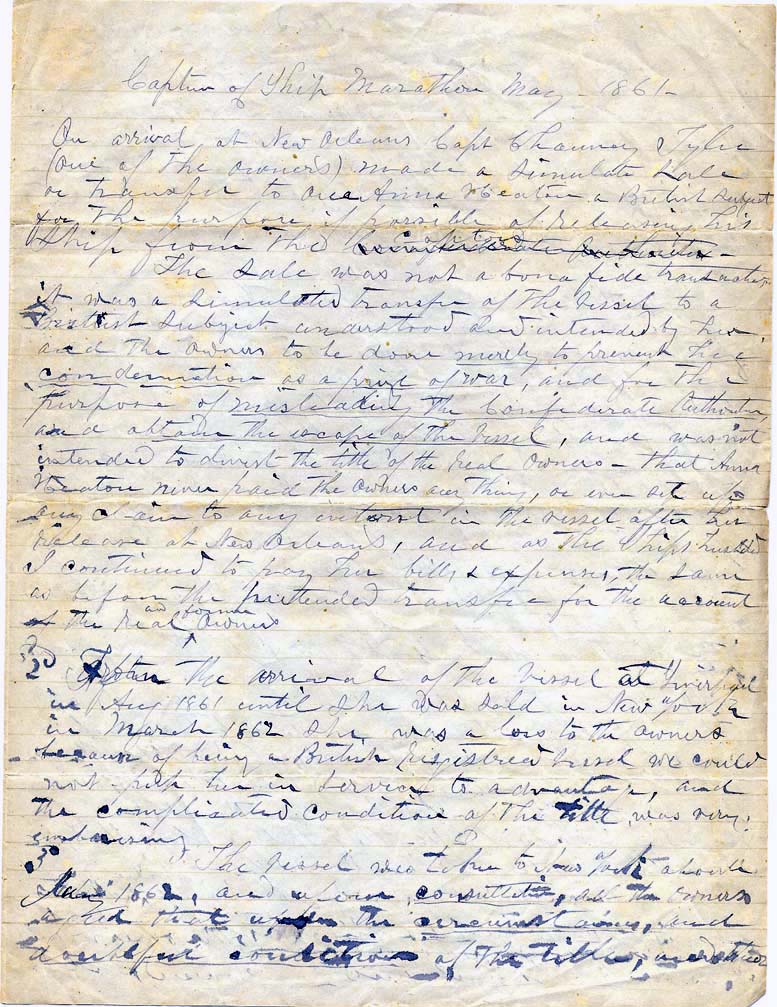 Capture of Ship Marathon May - 1861 -
On arrival at New Orleans Capt Chauncey Tyler
(One of the owners) made a simulate Sale
or transfer to one Anna Heaton a British Subject
for the purpose if possible of releasing his
Ship from the
The Sale was not a bona fide transaction
it was a simulated transfer of the vessel to a
British Subject understood and intended by her
and the owners to be done merely to prevent the
condemnation as a prize of war, and for the
purpose of misleading the Confederate Authorities,
and obtain the escape of the vessel, and was not
intended to divest the title of the real Owners - that Anna
Heaton never paid the owners any thing, or even set up
any claim to any interest in the vessel after her
release at New Orleans, and as the Ships husband
I continued to pay her bills & expenses, the same
as before the pretended transfer for the account
of the real and former Owners
2d From the arrival of the vessel at Liverpool
in Aug 1861 until she was sold in New York
in March 1862 she was a loss to the owners
because of being a British Registered vessel we could
not keep her in service to advantage, and
the complicated condition of the title was very
embarrassing
3d The vessel was taken to New York about
1862, and upon consultation, all the owners
agreed that under the circumstances, and
doubtful condition of the title,